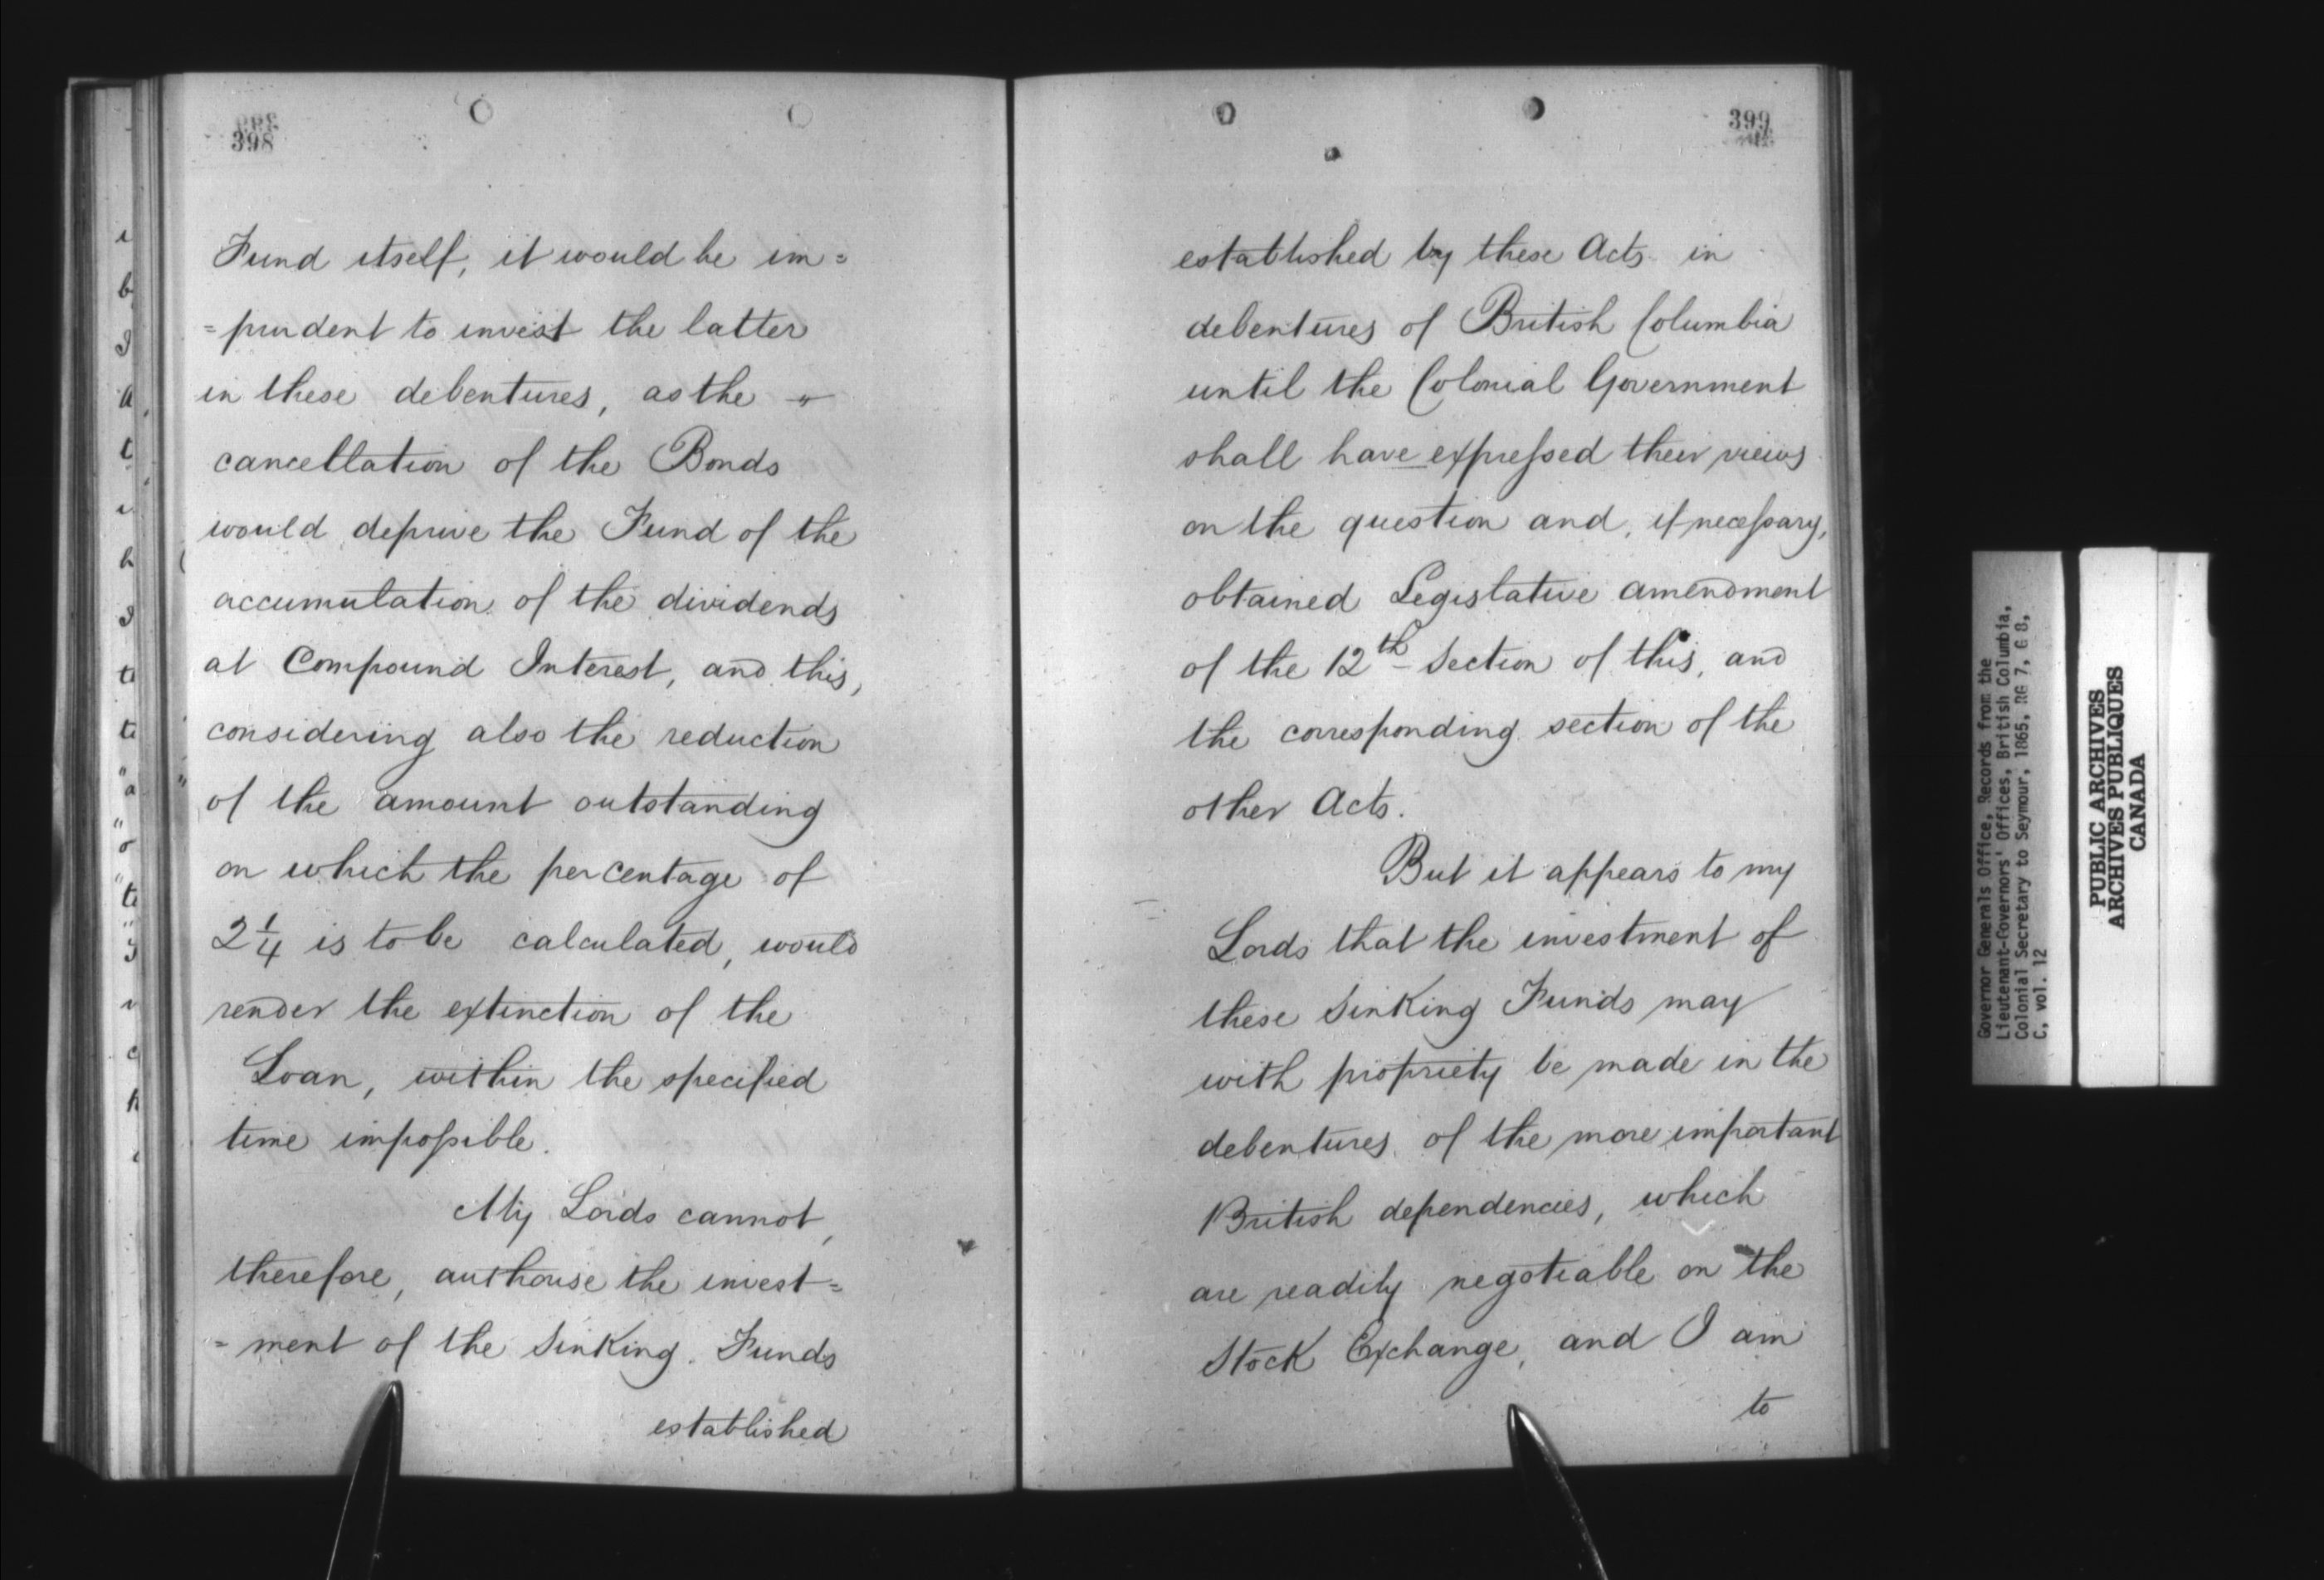 398
Fund itself, it would be im=
=prudent to invest the latter
in these debentures, as the "
cancellation of the Bonds
would deprive the Fund of the
accumulation of the dividends
at Compound Interest, and this,
considering also the reduction
of the amount outstanding
on which the percentage of
2 1/4 is to be calculated, would
render the extinction of the
Loan, within the specified
time impossible.
My Lords cannot,
therefore, authorise the invest=
=ment of the Sinking Funds
established
399
established by these Acts in
debentures of British Columbia
until the Colonial Government
shall have expressed their views
on the question and, if necessary,
obtained Legislative amendment
of the 12th Section of this, and
the corresponding section of the
other Acts.
But it appears to my
Lords that the investment of
these Sinking Funds may
with propriety be made in the
debentures of the more important
British dependencies, which
are readily negotiable on the
Stock Exchange, and I am
to
Governor Generals Office, Records from the
Lieutenant-Governors' Offices, British Columbia,
Colonial Secretary to Seymour, 1865, RG 7, G 8,
C, vol. 12
PUBLIC ARCHIVES
ARCHIVES PUBLIQUES
CANADA